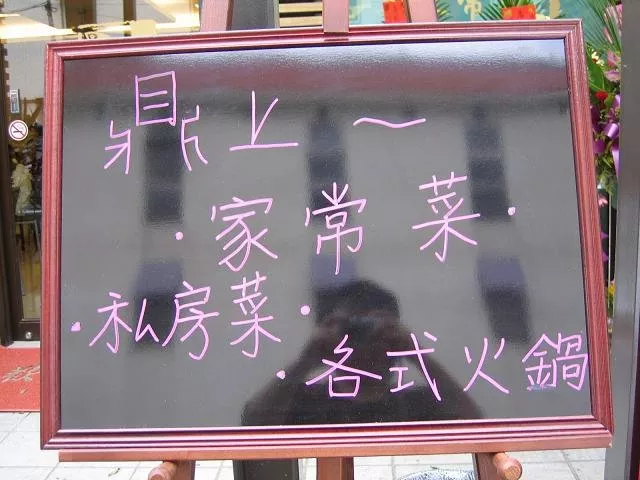 鼎上～
·家常菜·
·私房菜·
·各式火鍋